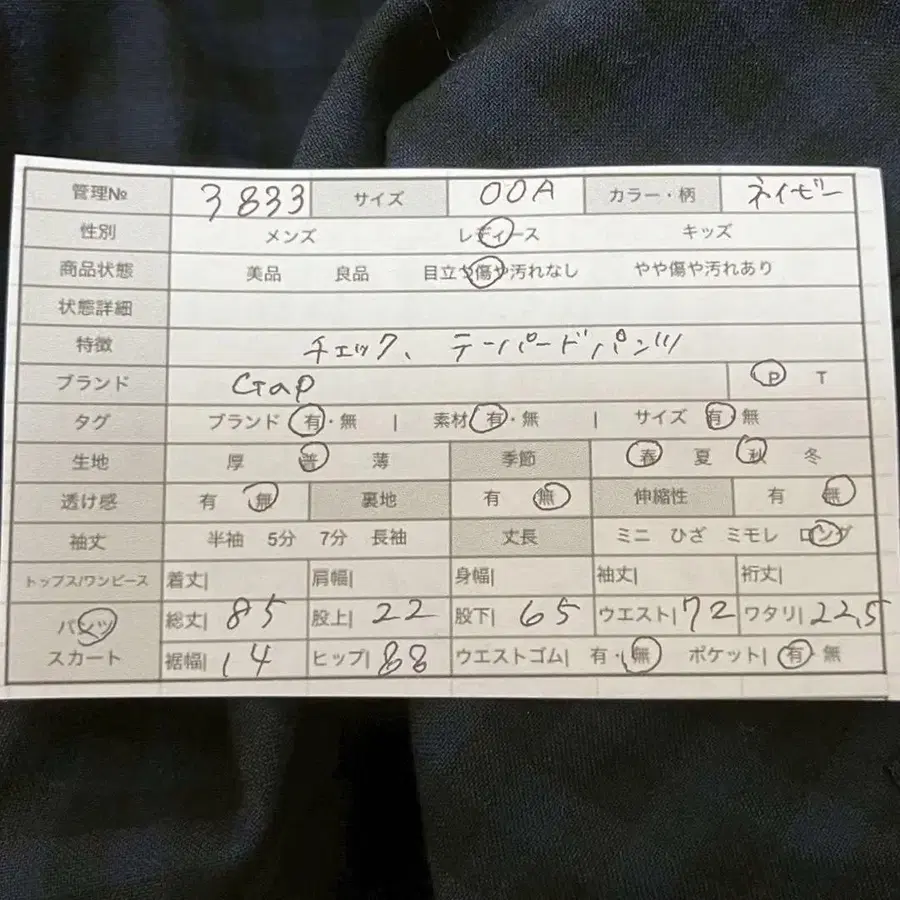 管理№ 3833 サイズ 00A カラー・柄 ネイビー
性別 メンズ レディース キッズ
商品状態 美品 良品 目立つ傷や汚れなし やや傷や汚れあり
状態詳細
特徴 チェック、テーパードパンツ
ブランド Gap P T
タグ ブランド 有・無 | 素材 有・無 | サイズ 有 無
生地 厚 普 薄 季節 春 夏 秋 冬
透け感 有 無 裏地 有 無 伸縮性 有 無
袖丈 半袖 5分 7分 長袖 丈長 ミニ ひざ ミモレ ロング
トップス/ワンピース 着丈| 肩幅| 身幅| 袖丈| 裄丈|
パンツ 総丈| 85 股上| 22 股下| 65 ウエスト| 72 ワタリ| 22,5
スカート 裾幅| 14 ヒップ| 88 ウエストゴム| 有・無 ポケット| 有・無